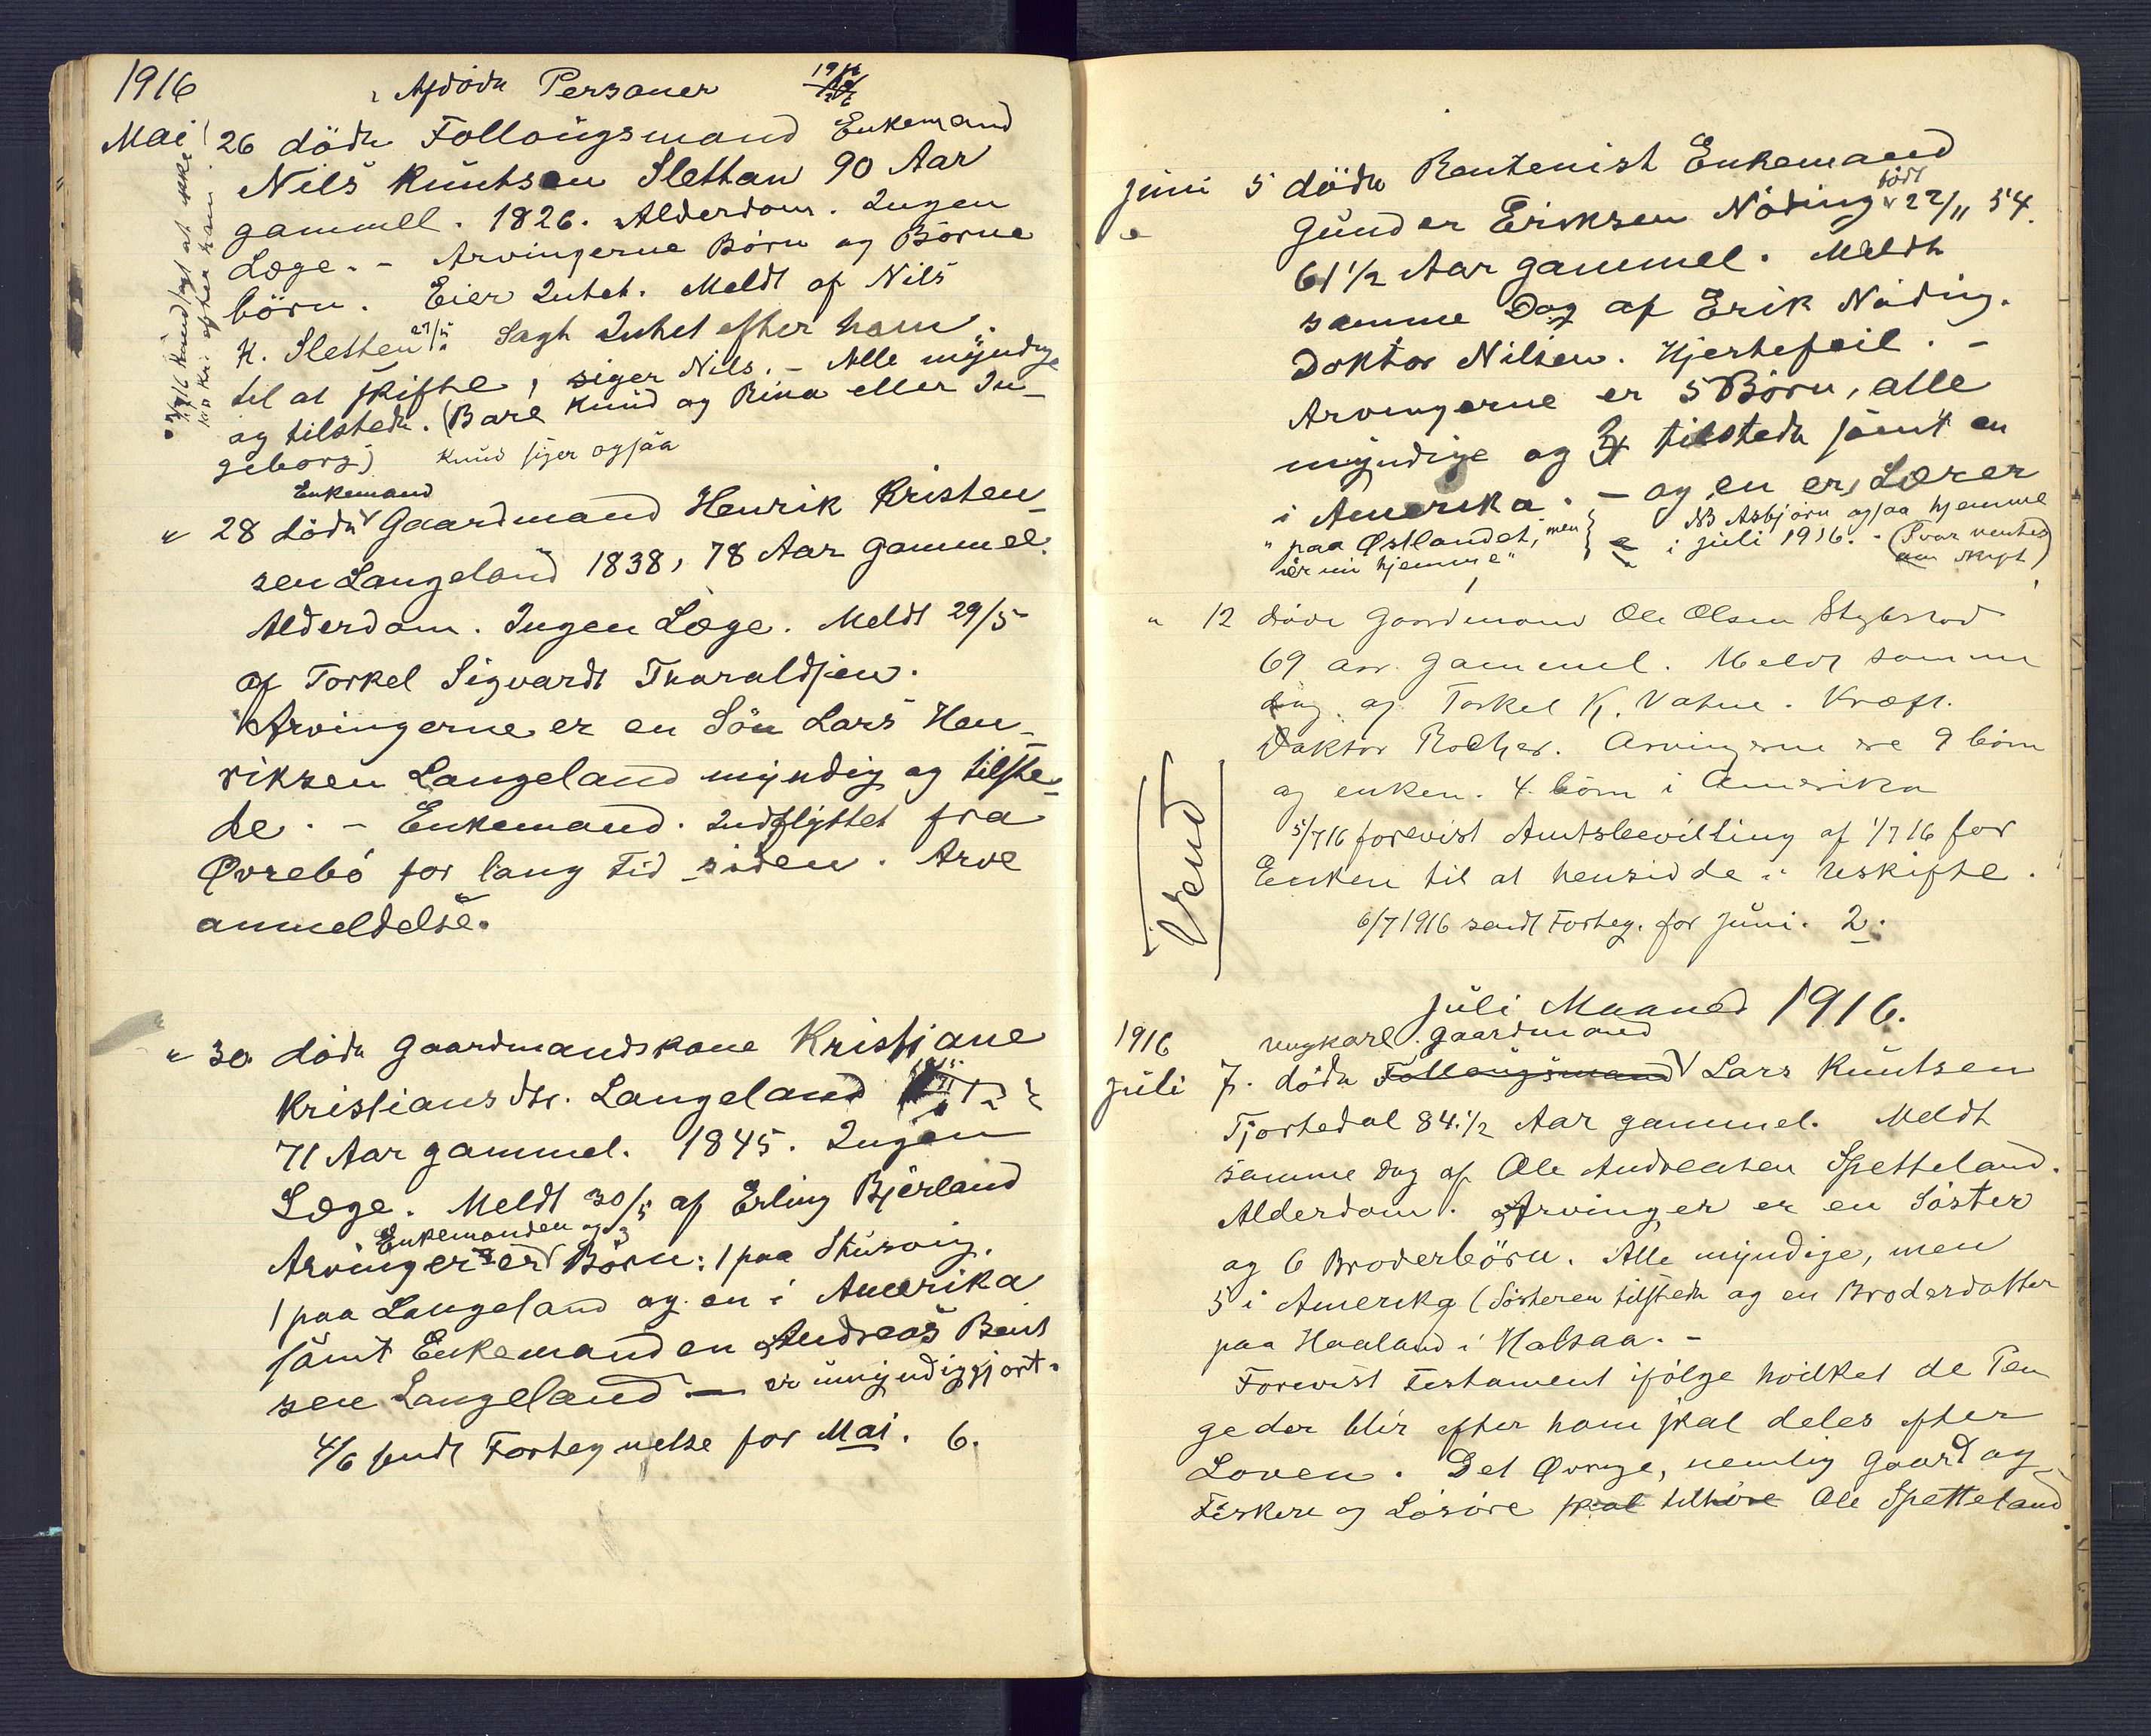 1916 Afdöde Personer
Mai 26 döde Follougsmand Enkemand
Nils Knutsen Slettan 90 Aar
gammel. 1826. Alderdom. Ingen
Læge. - Arvingerne Börn og Börne
börn. Eier Intet. Meldt af Nils
K. Sletten 27/5: Sagt Intet efter ham.
til at skifte, siger Nils. - Alle myndige
og tilstede. (Bare Knud og Rina eller In-
geborg) Knud siger ogsaa
Enkemand
" 28 döde Gaardmand Henrik Kristen-
sen Langeland 1838, 78 Aar gammel.
Alderdom. Ingen Læge. Meldt 29/5
af Torkel Sigvardt Tharaldsen.
Arvingerne er en Sön Lars Hen-
riksen Langeland myndig og tilste-
de. - Enkemand. Indflyttet fra
Øvrebö for lang Tid siden. Arve
anmeldelse.
" 30 döde Gaardmandskone Kristiane
Kristiansdtr. Langeland
71 Aar gammel. 1845. Ingen
Læge. Meldt 30/5 af Erling Bjerland
Enkemanden og 3
Arvinger er Börn: 1 paa Skusvig,
1 paa Langeland og en i Amerika
samt Enkemanden Andreas Bent
sen Langeland — er umyndiggjort.
4/6 sendt Fortegnelse for Mai. 6.
Juni 5 döde Rentenist Enkemand
Gunder Eriksen Nöding födt 22/11 54.
61 1/2 Aar gammel. Meldt
samme Dag af Erik Nöding.
Doktor Nilsen. Hjertefeil. -
Arvingerne er 5 Börn, alle
myndige og 3 tilstede samt en
i Amerika. - og en er Lærer
" paa Østlandet, men NB Asbjörn ogsaa hjemme
er nu hjemme" i Juli 1916. - (Svar ventes
om skift)
" 12 döde Gaardmand Ole Olsen Stubsrod
69 aar gammel. Meldt samme
dag af Torkel K. Vatne. Kræft.
Doktor Rocher. Arvingerne er 9 börn
og enken. 4 börn i Amerika
5/7 16 forevist Amtsbevilling af 1/7 16 for
Enken til at hensidde i Uskifte.
6/7 1916 sendt Forteg. for Juni. 2.
Juli Maaned 1916.
1916 ungkarl. gaardmand
Juli 7. döde Follougsmand Lars Knutsen
Tjortedal 84 1/2 Aar gammel. Meldt
samme Dag af Ole Andreasen Spetteland.
Alderdom. Arvinger er en Söster
og 6 Broderbörn. Alle myndige, men
5 i Amerika (Sösteren tilstede og en Broderdatter
paa Haaland i Halsaa. -
Forevist Testament ifölge hvilket de Pen
ge der blir efter ham skal deles efter
Loven. Det Øvrige, nemlig Gaard og
Fiskeri og Lösöre skal tilhöre Ole Spetteland.